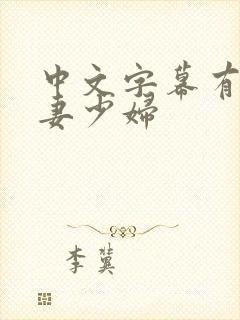 中文字幕有
妻少婦
李冀